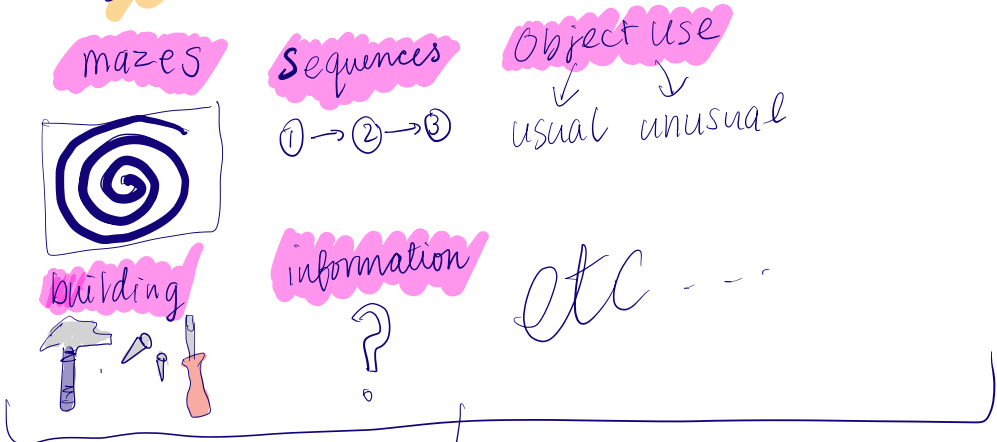 mazes
Sequences
Object use
1 → 2 → 3
usual unusual
building
information
?
etc ...